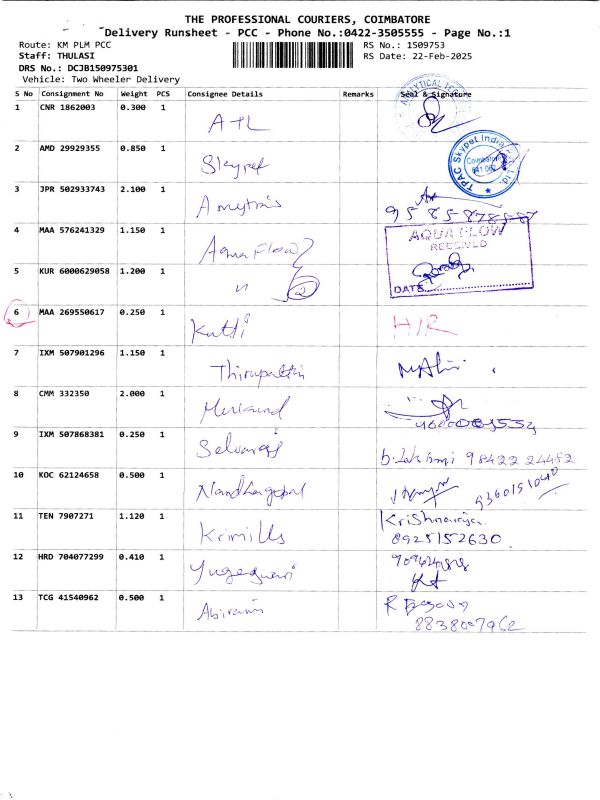 THE PROFESSIONAL COURIERS, COIMBATORE
Delivery Runsheet - PCC - Phone No.:0422-3505555 - Page No.:1
Route: KM PLM PCC
RS No.: 1509753
Staff: THULASI
RS Date: 22-Feb-2025
DRS No.: DCJB150975301
Vehicle: Two Wheeler Delivery
S No Consignment No Weight PCS Consignee Details Remarks Seal & Signature
1 CNR 1862003 0.300 1 ATL
2 AMD 29929355 0.850 1 Skypet
TPAC Skypet India Pvt. Ltd.
Coimbatore
641 062
3 JPR 502933743 2.100 1
4 MAA 576241329 1.150 1 Aqua Flow
AQUA FLOW
RECEIVED
DATE
5 KUR 6000629058 1.200 1 " 2
6 MAA 269550617 0.250 1 Kutti H/R
7 IXM 507901296 1.150 1 Thirupathi
8 CMM 332350 2.000 1
9 IXM 507868381 0.250 1 Selvaraj
98422 24452
10 KOC 62124658 0.500 1 Nandhagopal
11 TEN 7907271 1.120 1
Krishnaraja
8925152630
12 HRD 704077299 0.410 1
13 TCG 41540962 0.500 1 Abirami
8838007962